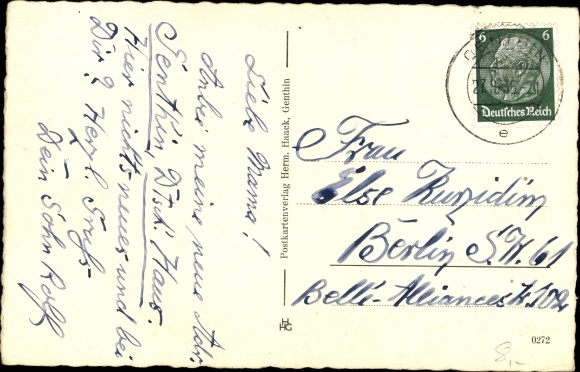 Liebe Mama!
Anbei meine neue Adr.
Genthin, Distr. Haus.
Hier nichts neues und bei
Dir? Herzl. Gruß
Dein Sohn Rolf
Postkartenverlag Herm. Haack, Genthin
6 6
Deutsches Reich
e
Frau
Else
Berlin S.W. 61
Belle-Alliancestr. 102
0272
8,-